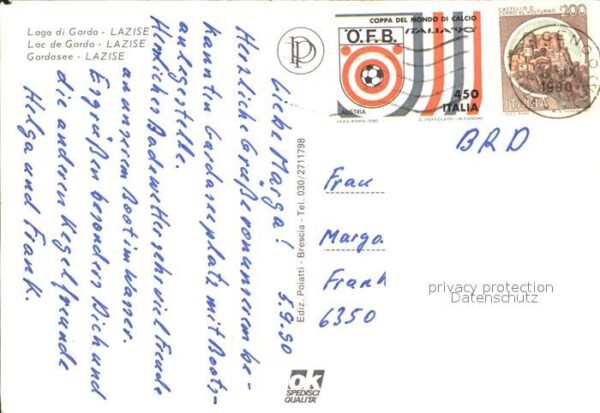 Lago di Garda - LAZISE
Lac de Garda - LAZISE
Gardasee - LAZISE
Liebe Marga! 5.9.90
Herzliche Grüße von unserem be-
kannten Gardaseeplatz mit Boots-
anlegstelle.
Herrlicher Badewetter sehr viel Freude
an unserem Boot im Wasser.
Es grüßen besonders Dich und
die anderen Kegelfreunde
Helga und Frank.
Ediz. Poiatti - Brescia - Tel. 030/2711798
ok
SPEDISCI
QUALITÀ
COPPA DEL MONDO DI CALCIO
ITALIA '90
Ö.F.B.
AUSTRIA
450
ITALIA
I.P.Z.S.-ROMA-1990
CASTELLO DI
CERRO AL VOLTURNO
200
ITALIA
1990
BRD
Frau
Marga
Frank
6350
privacy protection
Datenschutz